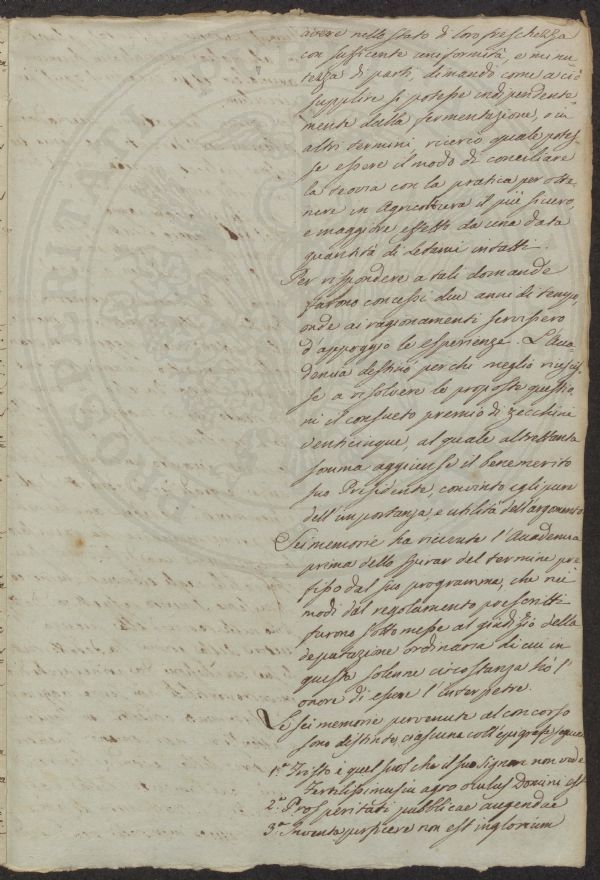 avere nello stato di loro freschezza
con sufficente uniformità, e minu
tezza di parti, dimandò come a ciò
supplire si potesse indipendente
mente dalla fermentazione, o in
altri termini, ricercò quale potes
se essere il modo di conciliare
la teoria con la pratica per otte
nere in Agricoltura il più sicuro,
e maggiore effetto da una data
quantità di letami intatti.
Per rispondere a tali domande
furono concessi due anni di tempo,
onde ai ragionamenti servissero
d'appoggio le esperienze. L'Acca
demia destinò per chi meglio riuscis
se a risolvere le proposte questio
ni il consueto premio di zecchini
venticinque, al quale altrettanta
somma aggiunse il benemerito
suo Presidente, convinto egli pure
dell'importanza, e utilità dell'argomento.
Sei memorie ha ricevute l'Accademia
prima dello spirar del termine pre
fisso dal suo programma, che nei
modi dal regolamento prescritti
furono sottomesse al giudizio della
deputazione ordinaria di cui in
questa solenne circostanza hò l'
onore di essere l'interpetre.
Le sei memorie pervenute al concorso
sono distinte, ciascuna coll'epigrafe seguen
1.a Tristo è quel suol che il suo Signore non vede
Fertilissimus in agro oculus Domini est
2.a Prosperitati pubblicae augendae
3.a Inventa perficere non est inglorium
PROSPERITATI PUBL